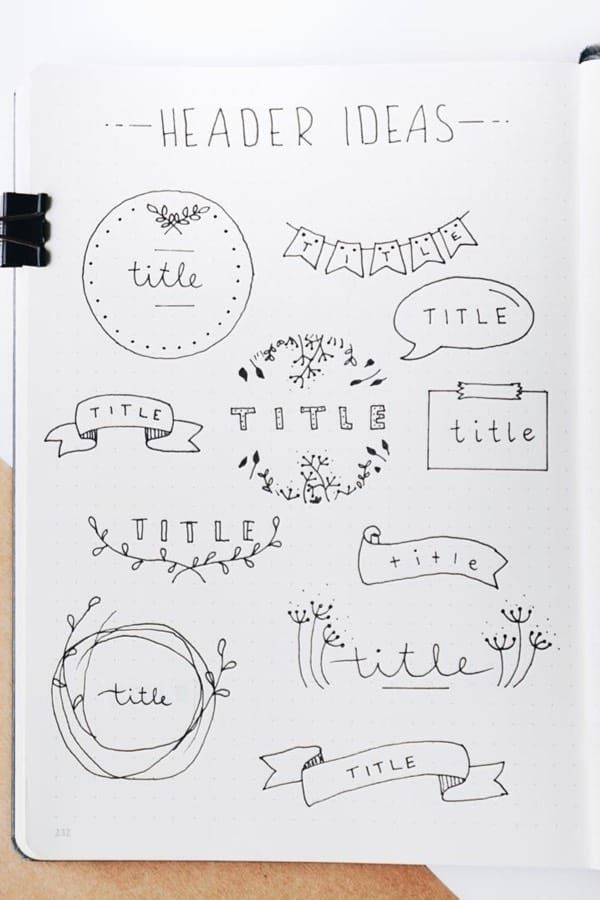 HEADER IDEAS
title
TITLE
TITLE
TITLE
TITLE
title
TITLE
title
title
title
TITLE
232